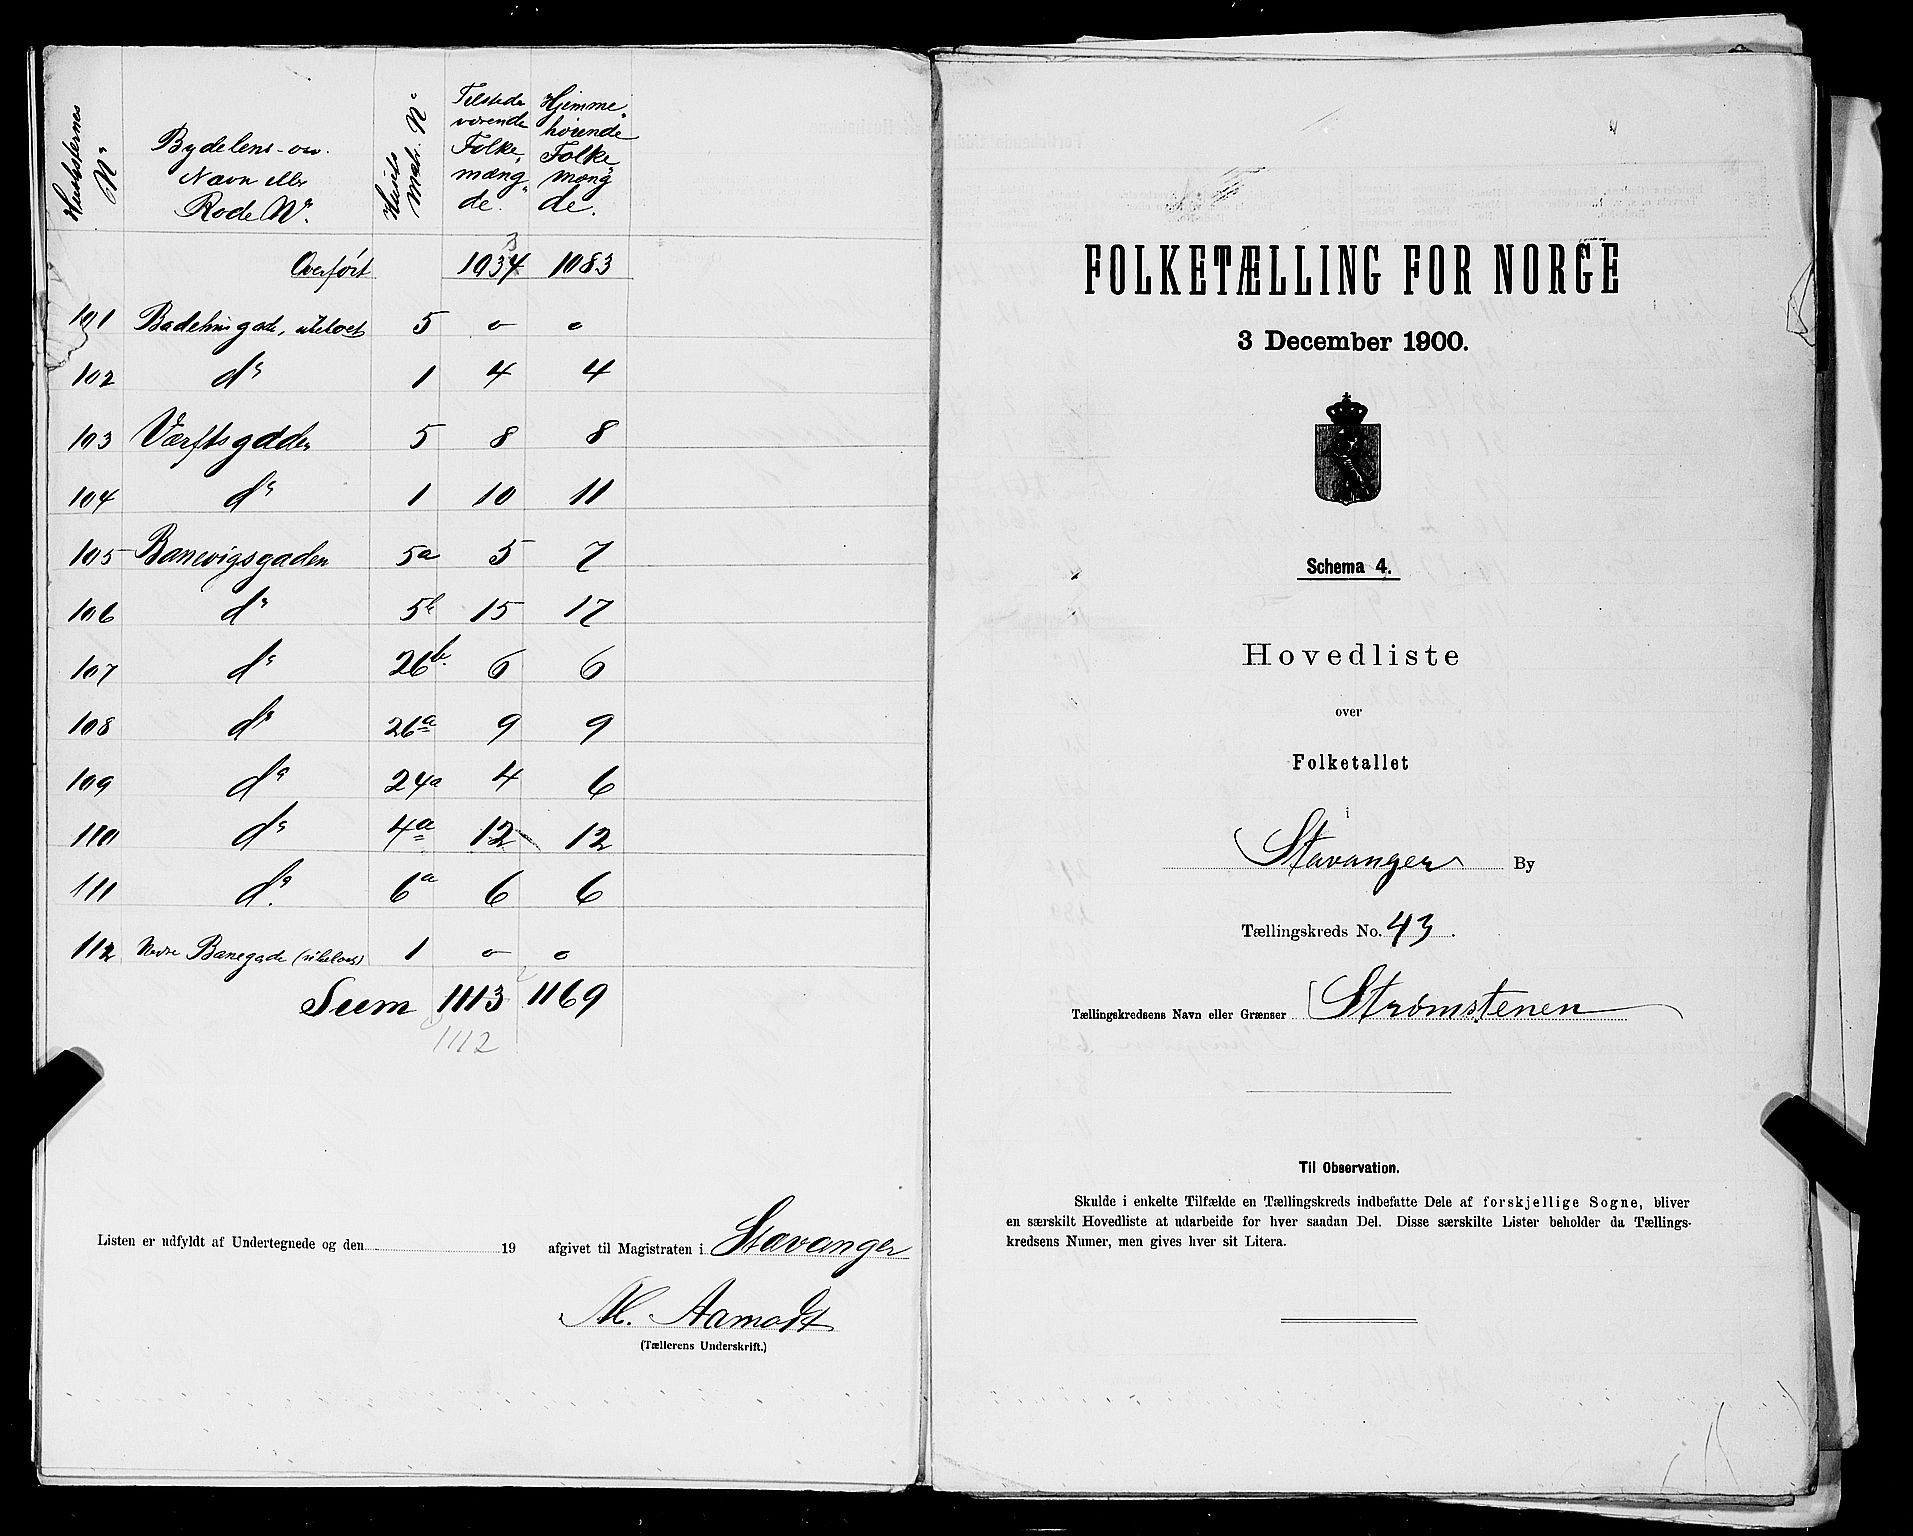 Huslisternes
No
Bydelens
Navn eller
Rode No.
Husets
Matr. No
Tilstede
værende
Folke,
mæng„
de.
Hjemme„
hørende
Folke
mæng
de.
3
Overført 1034 1083
101 Badehusgade, ubeboet 5 o o
102 do 1 4 4
103 Værftsgaden 5 8 8
104 do 1 10 11
105 Banevigsgaden 5a 5 7
106 do 5b 15 17
107 do 26b 6 6
108 do 26a 9 9
109 do 24a 4 6
110 do 4a 12 12
111 do. 6a 6 6
112 Nedre Banegade (ubeboet) 1 o o
Sum 1113 1169
1112
Listen er udfyldt af Undertegnede og den 19 afgivet til Magistraten i Stavanger
M. Aamodt
(Tællerens Underskrift.)
FOLKETÆLLING FOR NORGE
3 December 1900.
Schema 4.
Hovedliste
over
Folketallet
i
Stavanger By
Tællingskreds No. 43.
Tællingskredsens Navn eller Grænser Strømstenen
Til Observation.
Skulde i enkelte Tilfælde en Tællingskreds indbefatte Dele af forskjellige Sogne, bliver
en særskilt Hovedliste at udarbeide for hver saadan Del. Disse særskilte Lister beholder da Tællings-
kredsens Numer, men gives hver sit Litera.